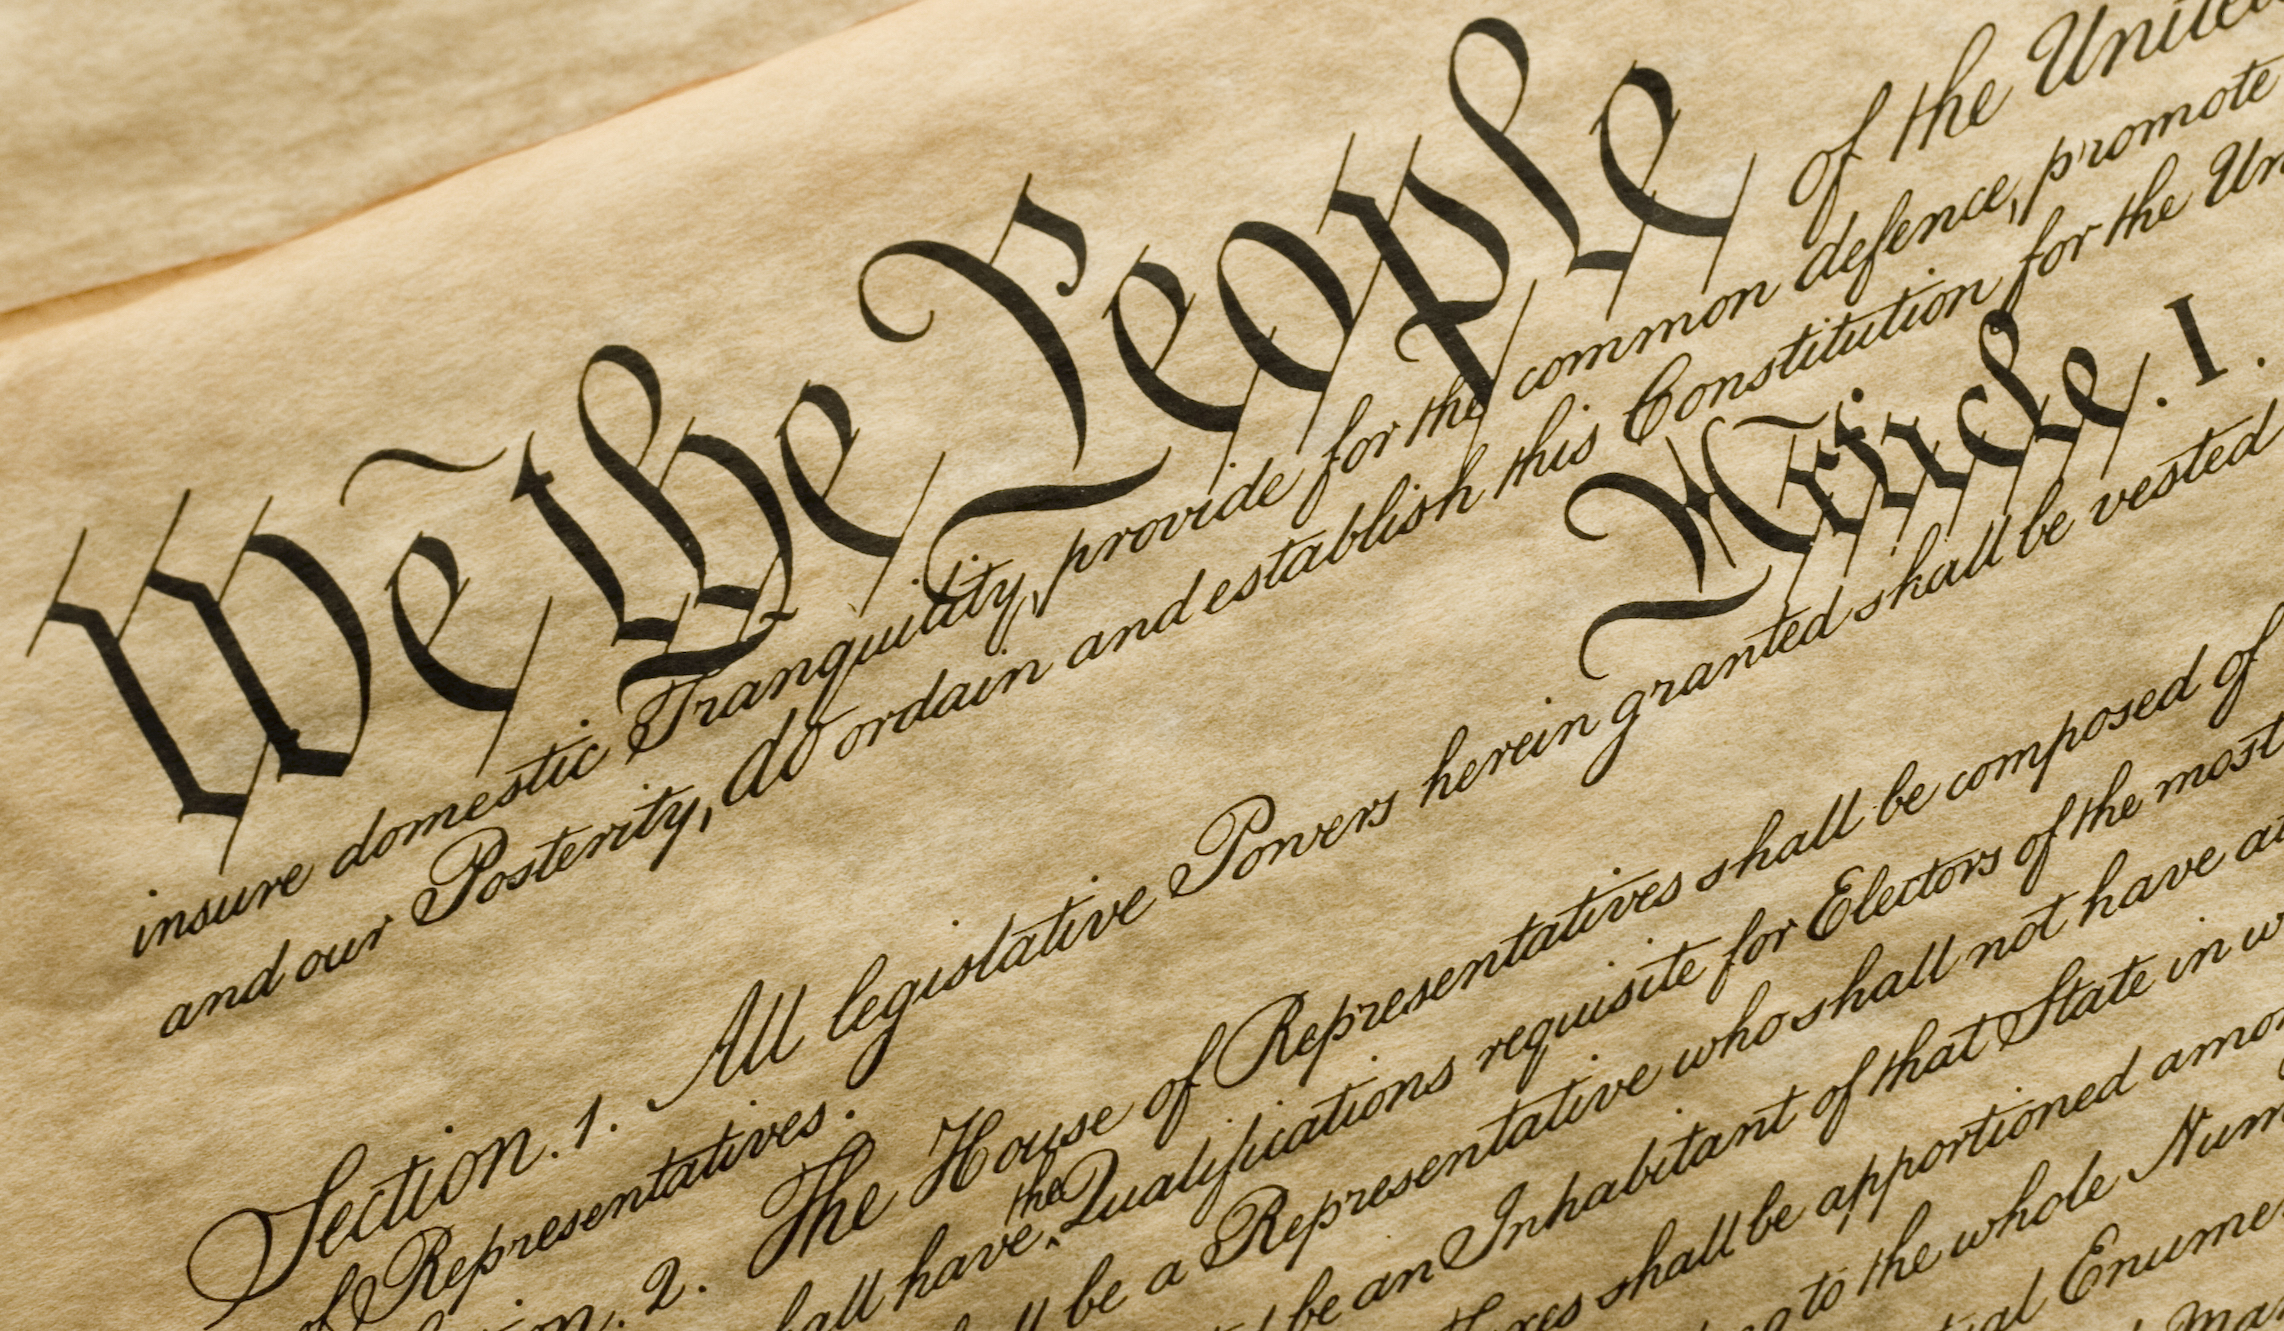 We the People of the United
insure domestic Tranquility, provide for the common defence, promote
and our Posterity, do ordain and establish this Constitution for the
Article. I.
Section. 1. All legislative Powers herein granted shall be vested
of Representatives.
2. The House of Representatives shall be composed of
have the Qualifications requisite for Electors of the most
be a Representative who shall not have
be an Inhabitant of that State in
shall be apportioned
to the whole